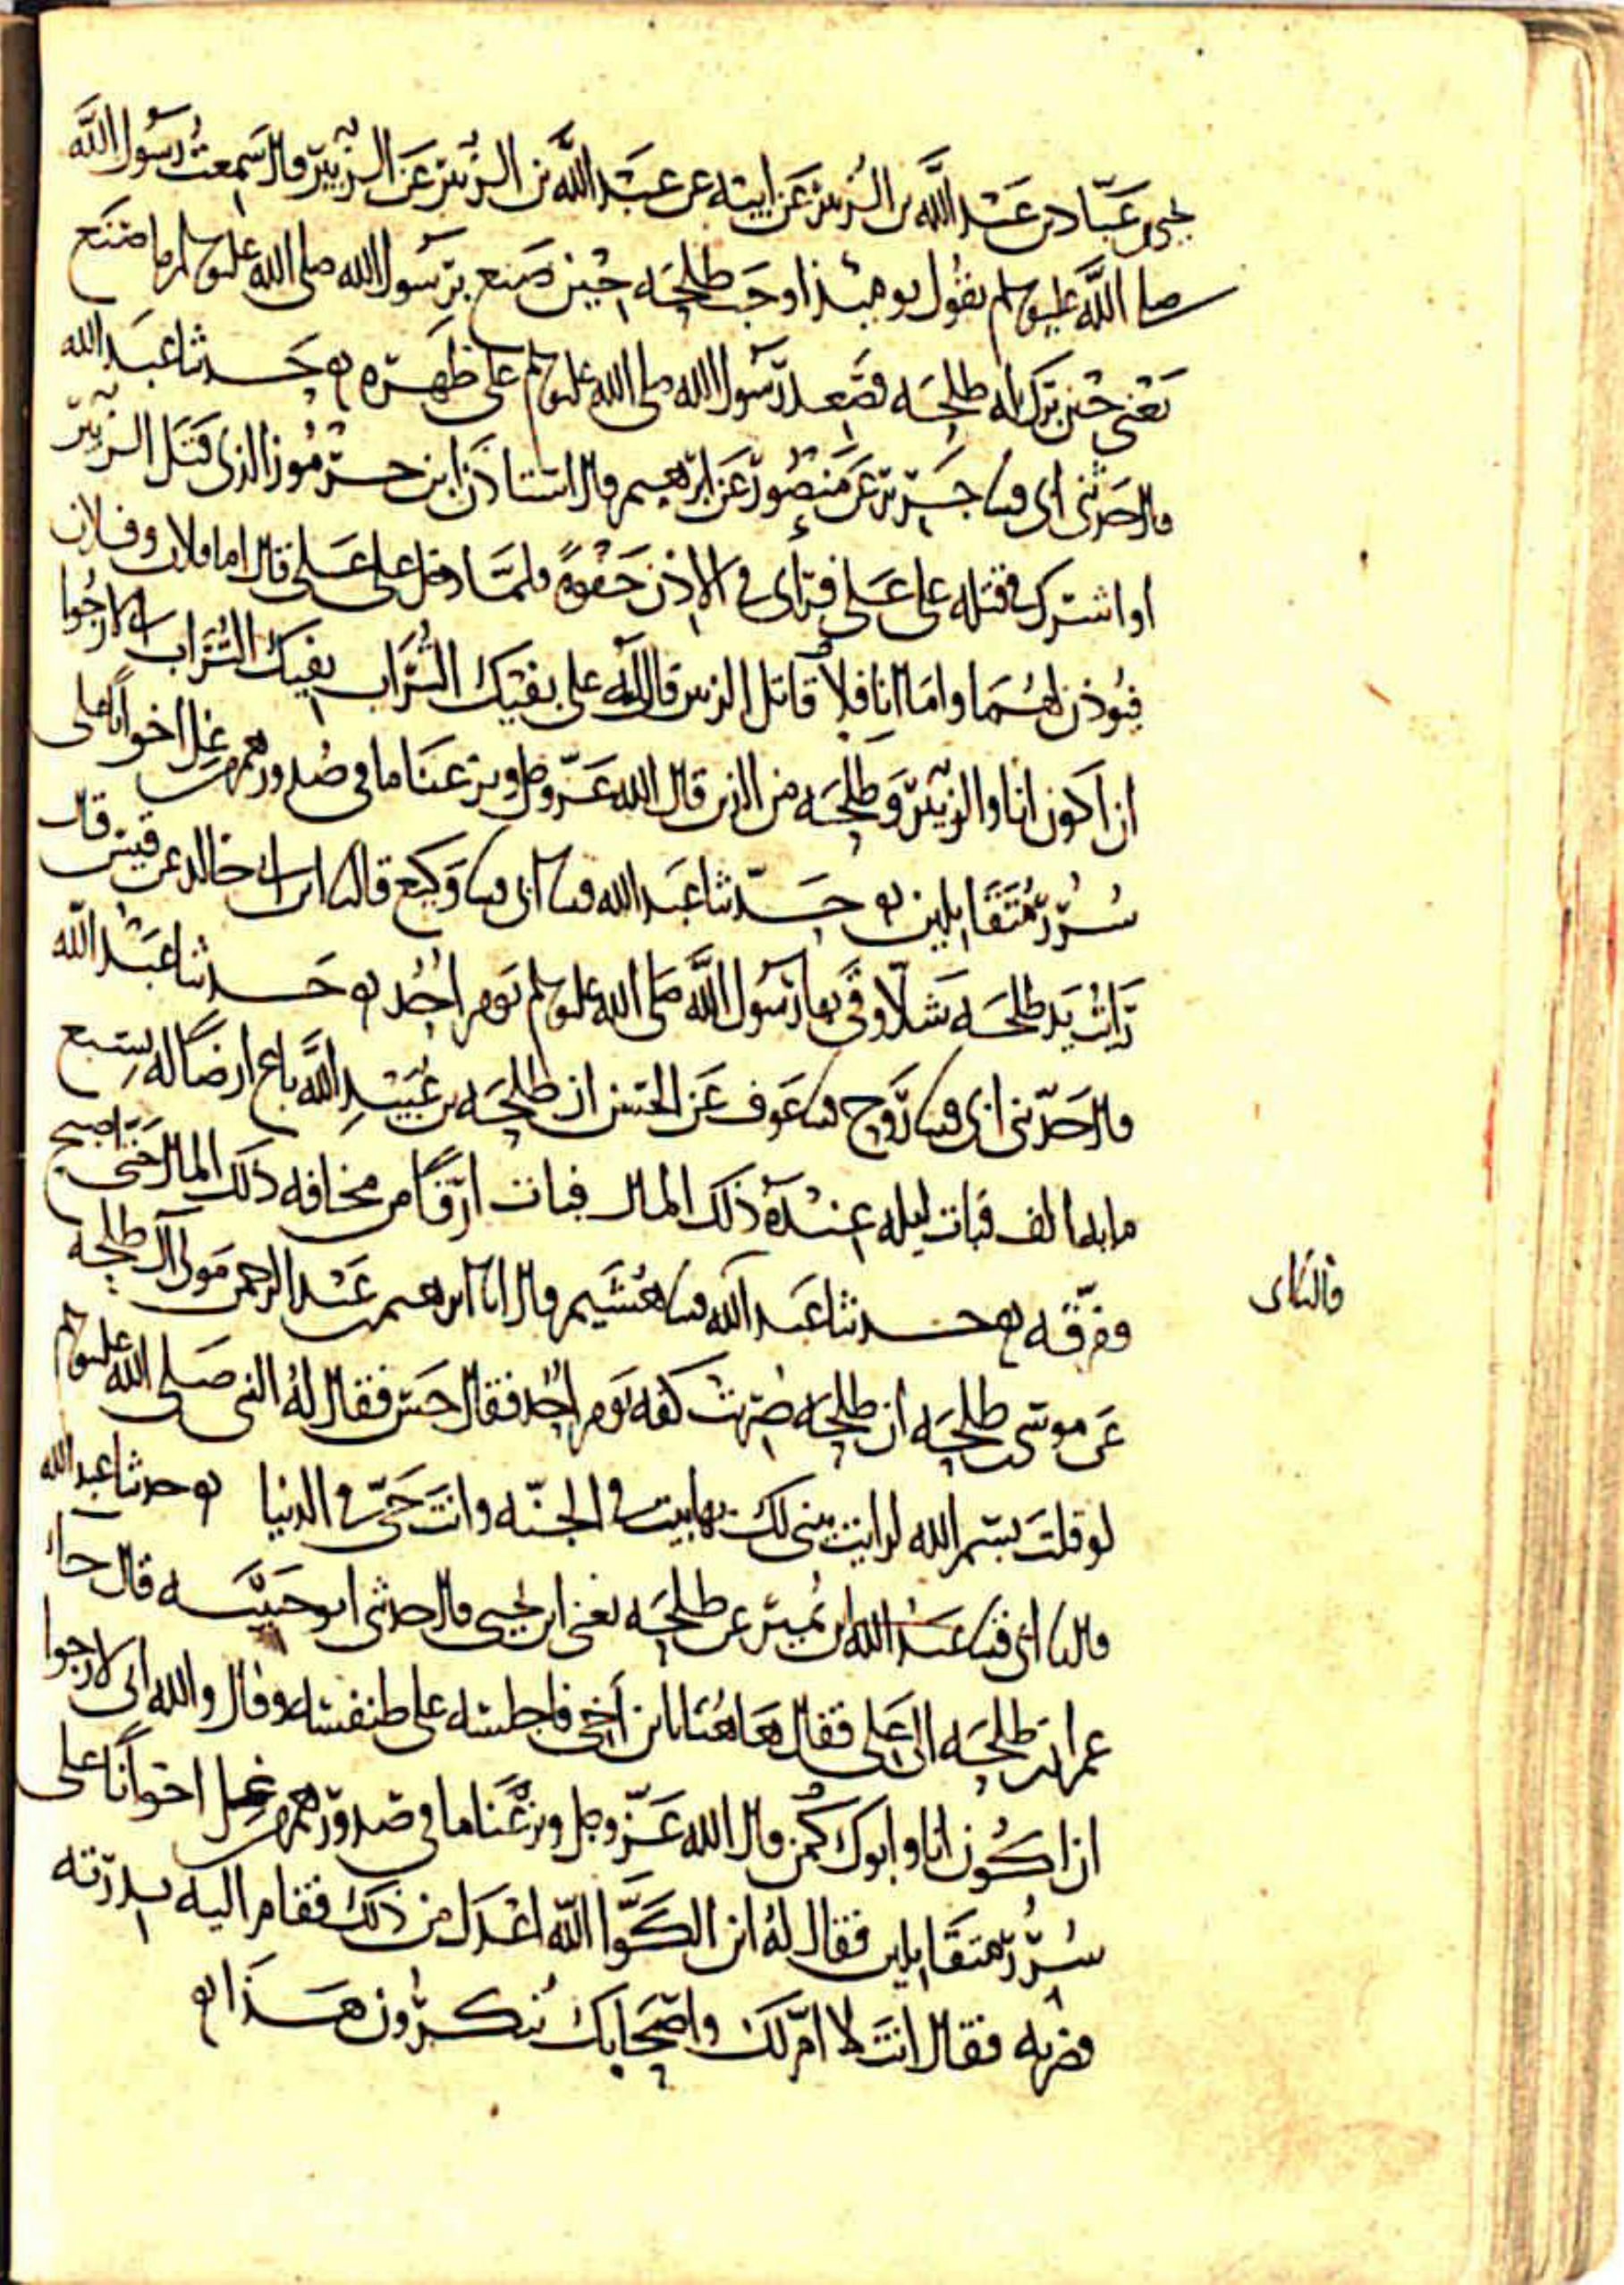 يحيى بن عباد بن عبد الله بن الزبير عن ابيه عن عبد الله بن الزبير عن الزبير قال سمعت رسول الله
صلى الله عليه وسلم يقول يومئذ اوجب طلحة حين صنع برسول الله صلى الله عليه وسلم ما صنع
يعني حين برك له طلحة فصعد رسول الله صلى الله عليه وسلم على ظهره حدثنا عبد الله
قال حدثني ابي قثنا جرير عن منصور عن ابرهيم قال استاذن ابن جرموز الذي قتل الزبير
او اشترك في قتله على علي فراى في الاذن جفوة فلما دخل على علي قال اما فلان وفلان
فيوذن لهما واما انا فلا قاتل الزبير قال له علي بفيك التراب بفيك التراب اني لارجوا
ان اكون انا والزبير وطلحة من الذين قال الله عز وجل ونزعنا ما في صدورهم من غل اخوانا على
سرر متقابلين حدثنا عبد الله قثنا ابي قثنا وكيع قال ثنا ابن ابي خالد عن قيس قال
رايت يد طلحة شلا وقى بها رسول الله صلى الله عليه وسلم يوم احد حدثنا عبد الله
قال حدثني ابي قثنا روح قثنا عوف عن الحسن ان طلحة بن عبيد الله باع ارضا له بسبع
مايه الف فبات ليله عنده ذلك المال فبات ارقا من مخافه ذلك المال حتى اصبح
ففرقه حدثنا عبد الله قثنا هشيم قال انا ابرهيم بن عبد الرحمن مولى آل طلحة
قال ثنا ابي
عن موسى بن طلحة ان طلحة ضربت كفه يوم احد فقال حس فقال له النبي صلى الله عليه وسلم
لو قلت بسم الله لرايت يبنى لك بها بيت في الجنه وانت حي في الدنيا حدثنا عبد الله
قال ثنا ابي قثنا عبد الله بن نمير عن طلحة يعني ابن يحيى قال حدثني ابو حبيبه قال جا
عمران بن طلحة الى علي فقال هاهنا يا ابن اخي فاجلسه على طنفسته وقال والله اني لارجوا
ان اكون انا وابوك كمن قال الله عز وجل ونزعنا ما في صدورهم من غل اخوانا على
سرر متقابلين فقال له ابن الكوا الله اعدل من ذلك فقام اليه بدرته
فضربه فقال انت لا ام لك واصحابك تنكرون هذا